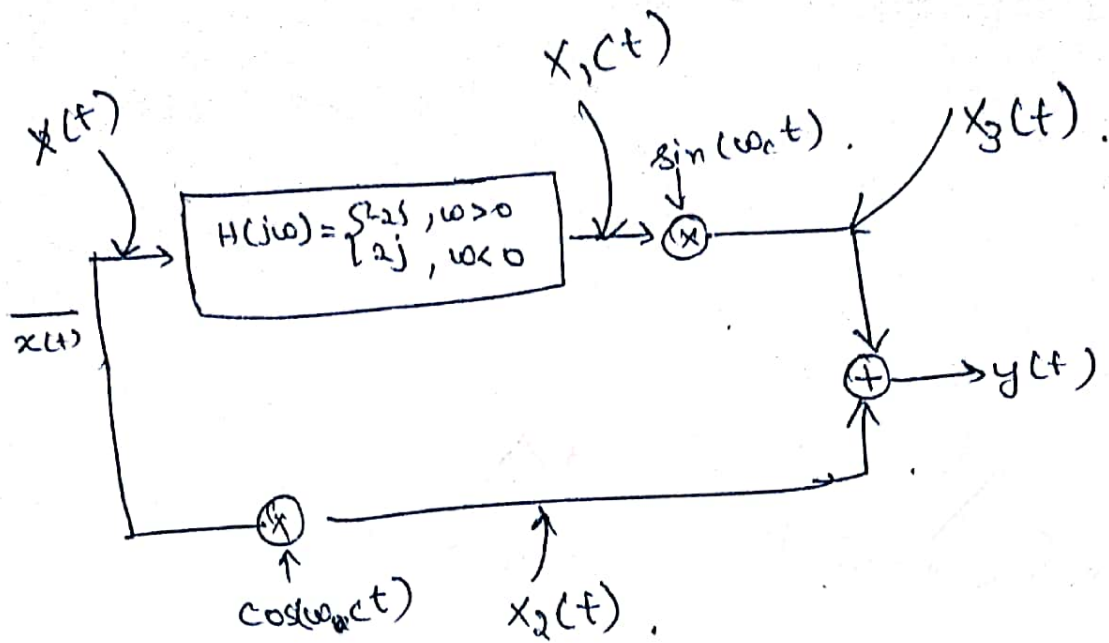 X₁(t)
x(t)
sin(ω_c t).
X₃(t).
H(jω) = { -2j , ω>0
2j , ω<0
x(t)
y(t)
cos(ω_c t)
X₂(t).